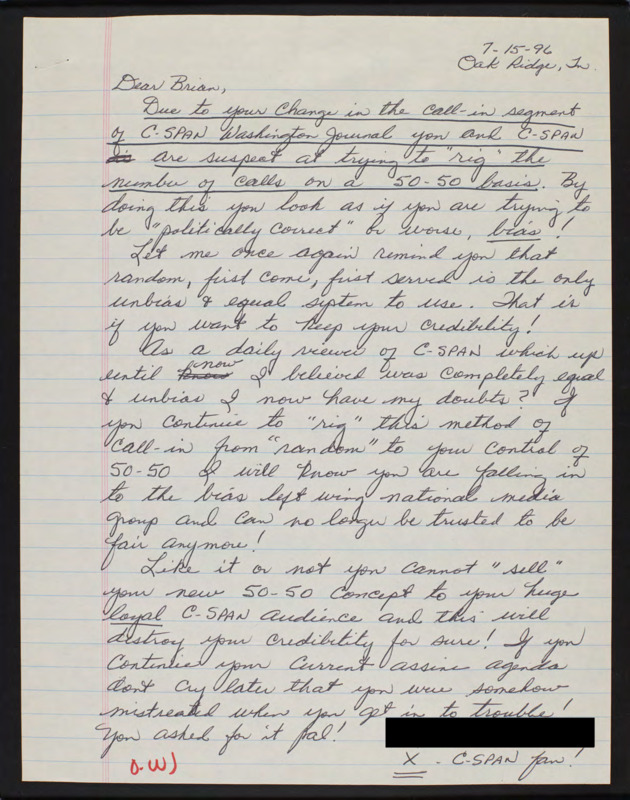 7-15-96
Oak Ridge, Tn.
Dear Brian,
Due to your change in the call-in segment
of C-SPAN Washington Journal you and C-SPAN
is are suspect at trying to "rig" the
number of calls on a 50-50 basis. By
doing this you look as if you are trying to
be "politically correct" or worse, bias!
Let me once again remind you that
random, first come, first served is the only
unbias & equal system to use. That is
if you want to keep your credibility!
As a daily viewer of C-SPAN which up
until know now I believed was completely equal
& unbias I now have my doubts? If
you continue to "rig" this method of
call-in from "random" to your control of
50-50 I will know you are falling in
to the bias left wing national media
group and can no longer be trusted to be
fair anymore!
Like it or not you cannot "sell"
your new 50-50 concept to your huge
loyal C-SPAN audience and this will
destroy your credibility for sure! If you
continue your current assine agenda
dont cry later that you were somehow
mistreated when you get in to trouble!
You asked for it pal!
X - C-SPAN fan!